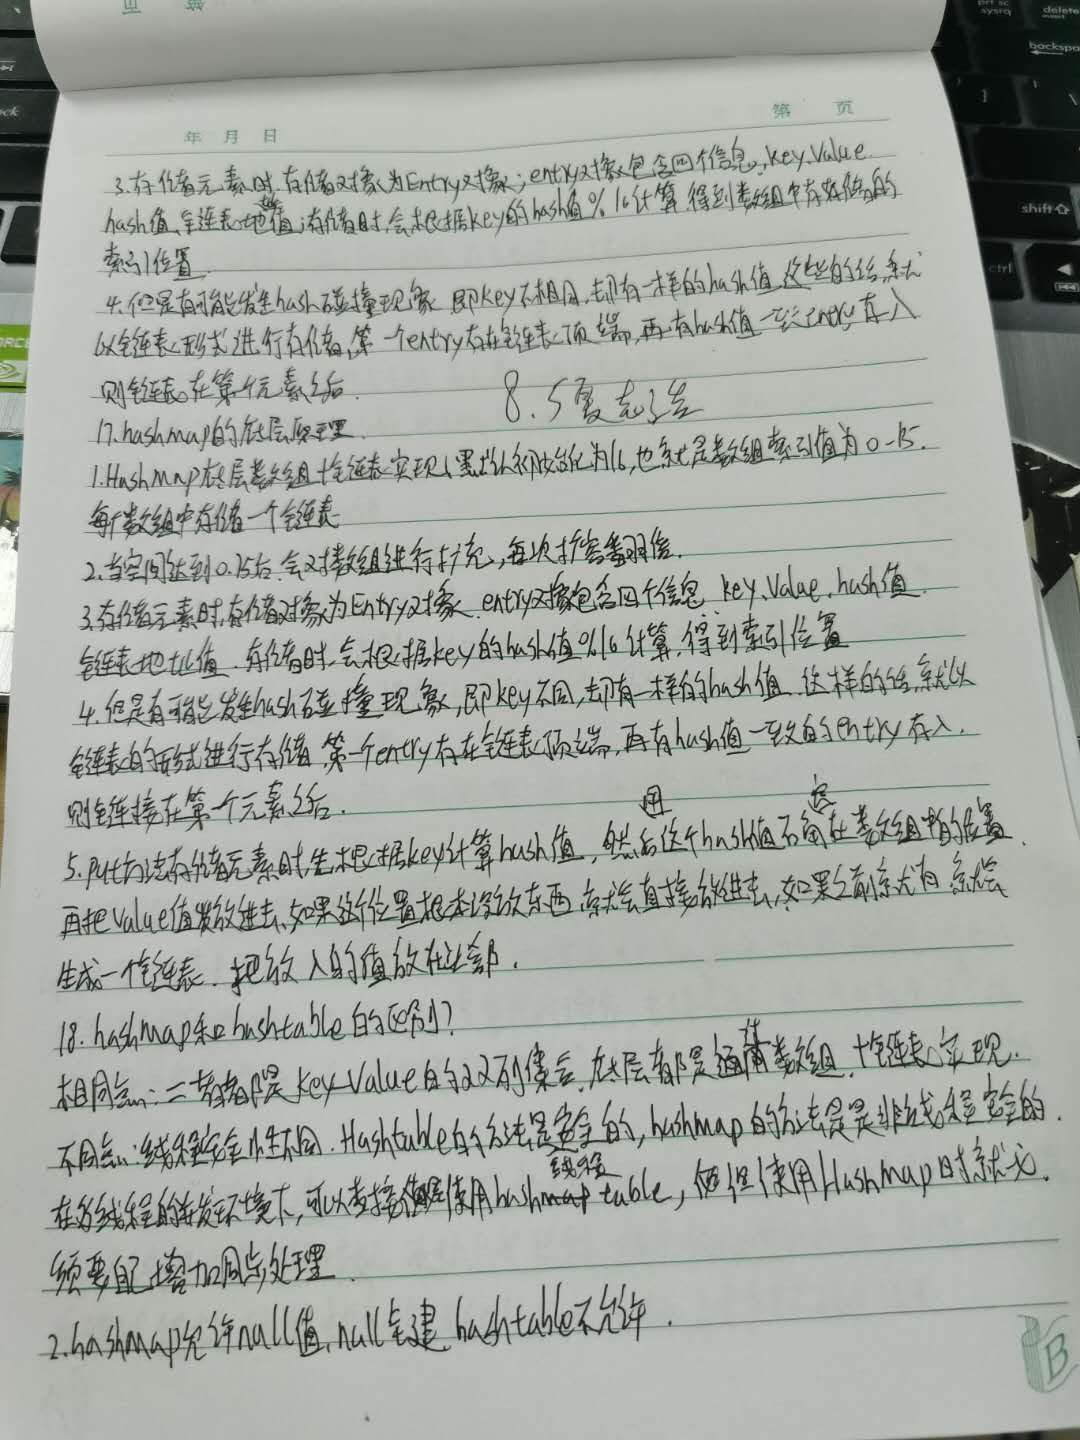 第 页
年 月 日
3.存储元素时,存储对象为Entry对象;entry对象包含四个信息,key,Value
hash值,链表地址值;存储时,会根据key的hash值%16计算,得到数组中存储的
索引位置
4.但是有可能发生hash碰撞现象 即key不相同,却有一样的hash值,这样的话,就
以链表形式进行存储,第一个entry存在链表顶端,再有hash值一致entry存入
则链表在第一个元素之后.
8.5复习了
17.hashmap的底层原理
1.HashMap底层数组+链表实现,默认初始化为16,也就是数组索引值为0-15.
每个数组中存储一个链表
2.当空间达到0.75后,会对数组进行扩充,每次扩容翻倍.
3.存储元素时,存储对象为Entry对象,entry对象包含四个信息 key、Value、hash值
链表地址值.存储时,会根据key的hash值%16计算,得到索引位置
4.但是有可能发生hash碰撞现象,即key不同,却有一样的hash值,这样的话,就以
链表的形式进行存储,第一个entry存在链表顶端,再有hash值一致的entry存入,
则链接在第一个元素之后.
用 定
5.Put方法存储元素时,先根据key计算hash值,然后这个hash值确在数组中的位置.
再把Value值放进去,如果这个位置根本没放东西,就会直接放进去,如果之前就有,就会
生成一个链表.把放入的值放在头部.
18.hashmap和hashtable的区别?
相同点:二者都是key-Value的双列集合,底层都是通过数组+链表实现.
不同点:线程安全性不同.Hashtable的方法是线程安全的,hashmap的方法是是非线程安全的.
在多线程的并发环境下,可以直接使用hashtable,但使用HashMap时就必
须要自己增加同步处理
2.hashmap允许null值,null键,hashtable不允许.
B
prt sc
sysrq
delete
insert
backspa
shift
ctrl